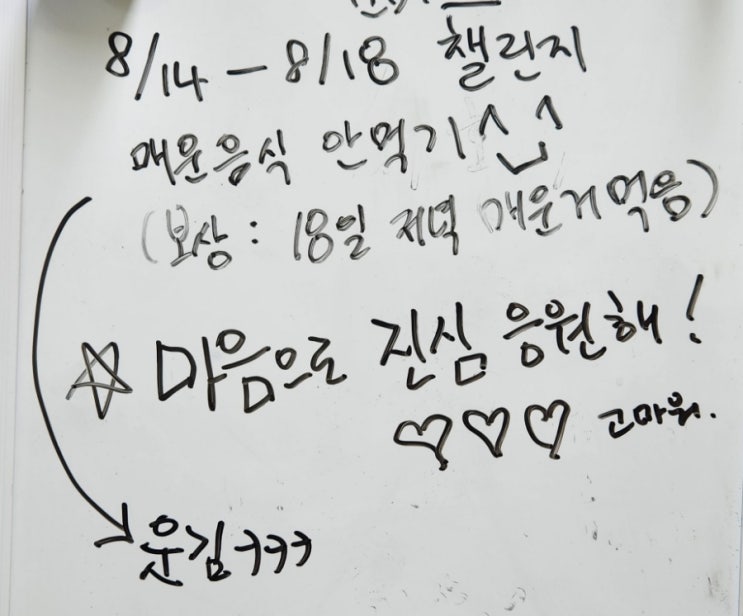 8/14 - 8/18 챌린지
매운음식 안먹기^^
(보상: 18일 저녁 매운거 먹음)
☆ 마음으로 진심 응원해!
♡♡♡ 고마워.
웃김ㅋㅋㅋ